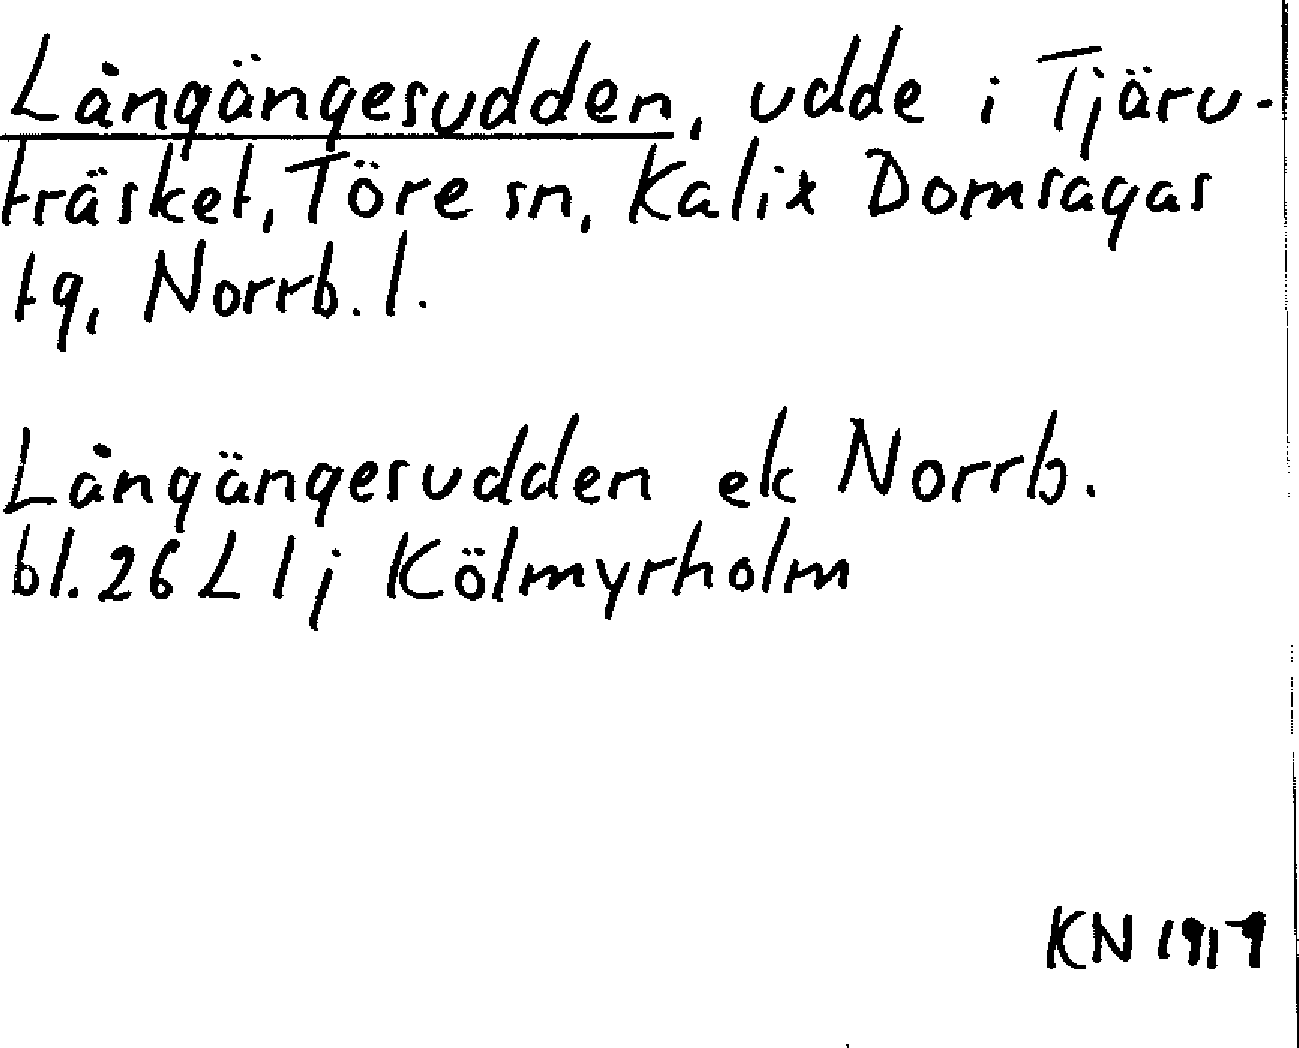 Långängesudden, udde i Tjäru-
träsket, Töre sn, Kalix Domsagas
tg, Norrb. l.
Långängesudden ek Norrb.
bl. 26 L 1 j Kölmyrholm
KN